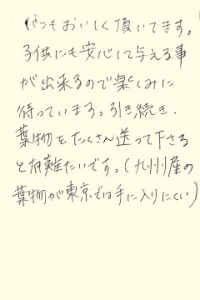 いつもおいしく頂いてます。
子供にも安心して与える事
が出来るので楽しみに
待っています。引き続き、
葉物をたくさん送って下さる
と有難たいです。(九州産の
葉物が東京では手に入りにくい)